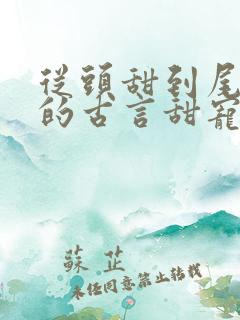 從頭甜到尾
的古言甜寵
蘇芷
未經同意禁止轉載